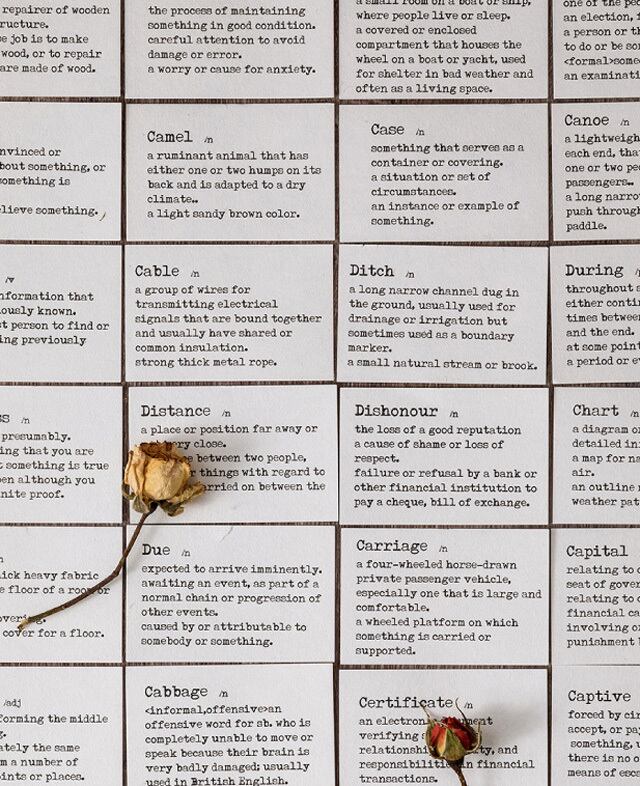 repairer of wooden
ructure.
se job is to make
wood, or to repair
are made of wood.
the process of maintaining
something in good condition.
careful attention to avoid
damage or error.
a worry or cause for anxiety.
a small room on a boat or ship,
where people live or sleep.
a covered or enclosed
compartment that houses the
wheel on a boat or yacht, used
for shelter in bad weather and
often as a living space.
one of the peo
an election, i
a person or th
to do or be so
<formal>some
an examinati
nvinced or
bout something, or
something is
lieve something.
Camel /n
a ruminant animal that has
either one or two humps on its
back and is adapted to a dry
climate..
a light sandy brown color.
Case /n
something that serves as a
container or covering.
a situation or set of
circumstances.
an instance or example of
something.
Canoe /n
a lightweigh
each end, tha
one or two peo
passengers..
a long narro
push through
paddle.
/v
nformation that
iously known.
st person to find or
ing previously
Cable /n
a group of wires for
transmitting electrical
signals that are bound together
and usually have shared or
common insulation.
strong thick metal rope.
Ditch /n
a long narrow channel dug in
the ground, usually used for
drainage or irrigation but
sometimes used as a boundary
marker.
a small natural stream or brook.
During /
throughout s
either conti
times between
and the end.
at some point
a period or ev
ss /n
presumably.
ing that you are
t something is true
en although you
nite proof.
Distance /n
a place or position far away or
very close.
between two people,
things with regard to
carried on between the
Dishonour /n
the loss of a good reputation
a cause of shame or loss of
respect.
failure or refusal by a bank or
other financial institution to
pay a cheque, bill of exchange.
Chart /n
a diagram or
detailed in
a map for na
air.
an outline m
weather pat
n
ick heavy fabric
e floor of a room or
covering.
cover for a floor.
Due /n
expected to arrive imminently.
awaiting an event, as part of a
normal chain or progression of
other events.
caused by or attributable to
somebody or something.
Carriage /n
a four-wheeled horse-drawn
private passenger vehicle,
especially one that is large and
comfortable.
a wheeled platform on which
something is carried or
supported.
Capital
relating to c
seat of gover
relating to c
financial ca
involving or
punishment b
/adj
forming the middle
g.
ately the same
m a number of
oints or places.
Cabbage /n
<informal,offensive>an
offensive word for sb. who is
completely unable to move or
speak because their brain is
very badly damaged; usually
used in British English.
Certificate /n
an electronic
verifying
relationship and
responsibilities in financial
transactions.
Captive
forced by cir
accept, or pay
something, w
there is no o
means of esca